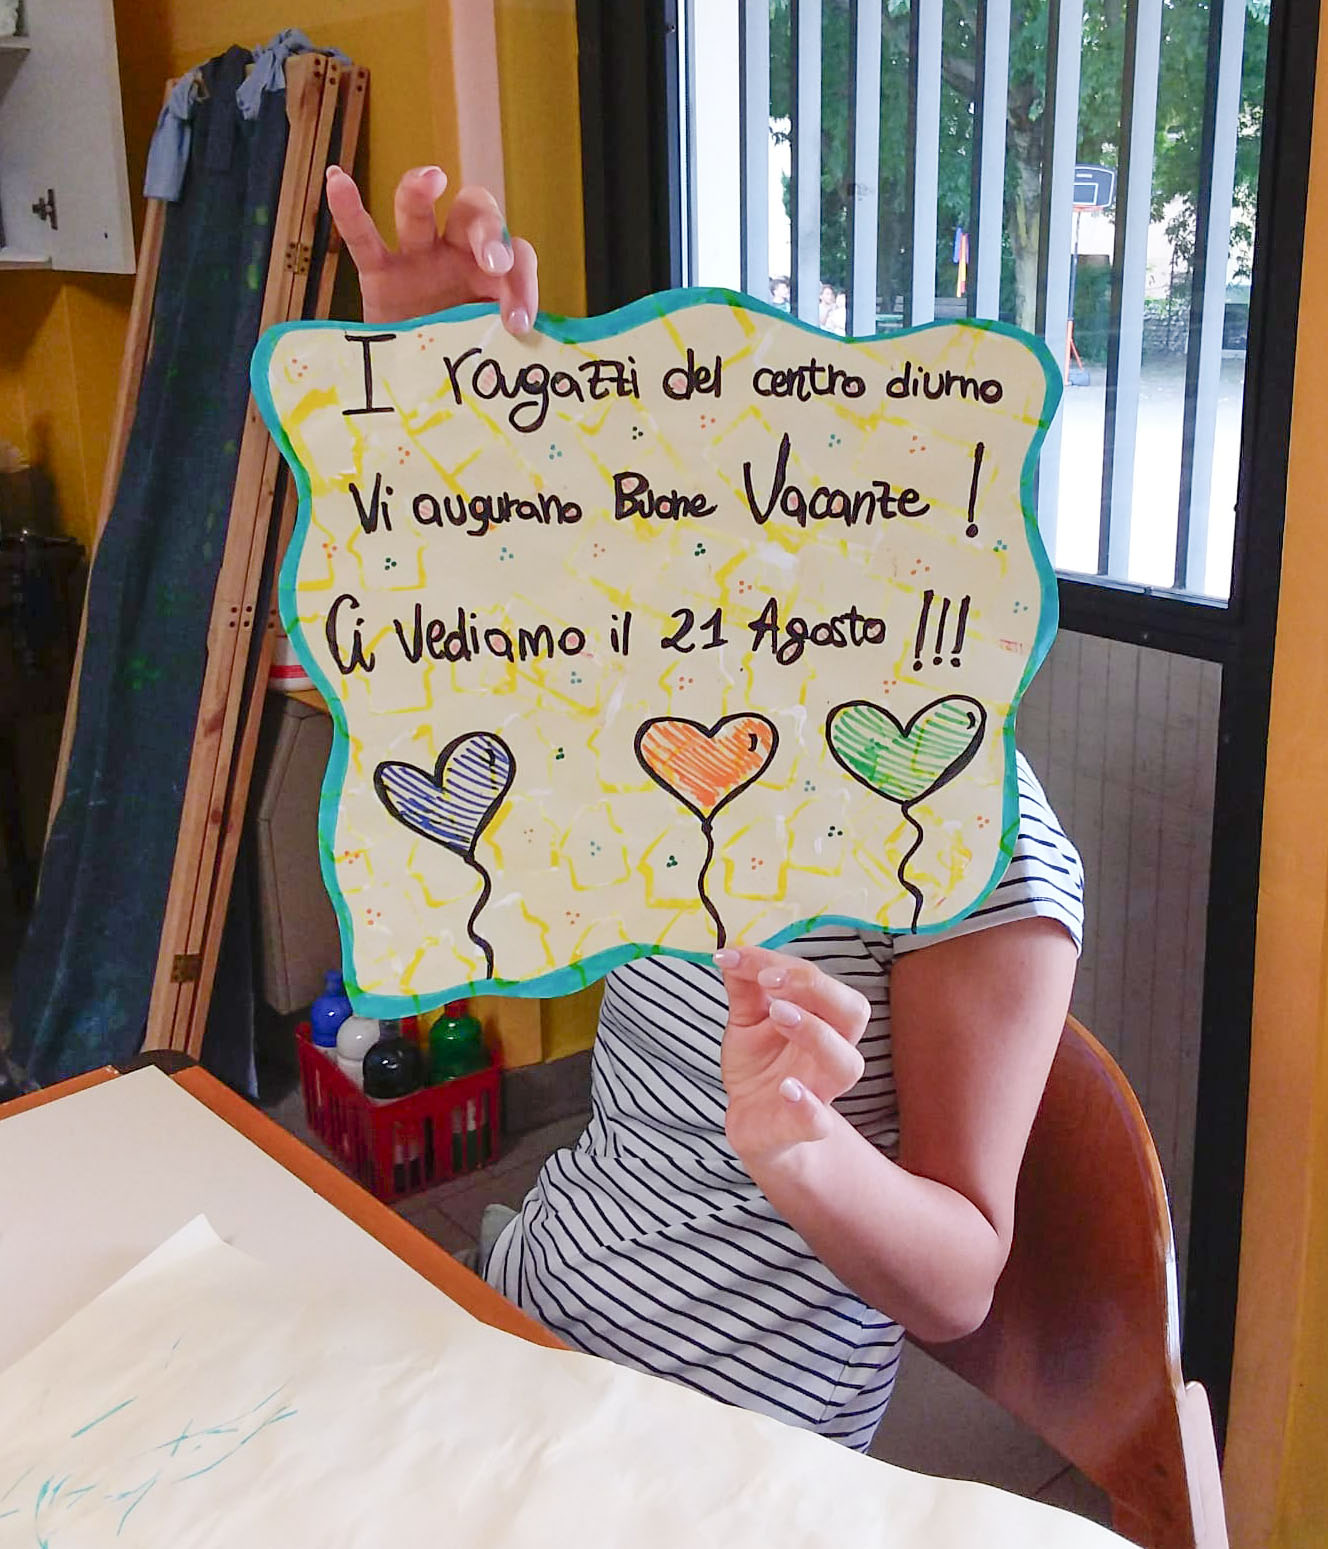 I ragazzi del centro diurno
Vi augurano Buone Vacanze !
Ci Vediamo il 21 Agosto !!!